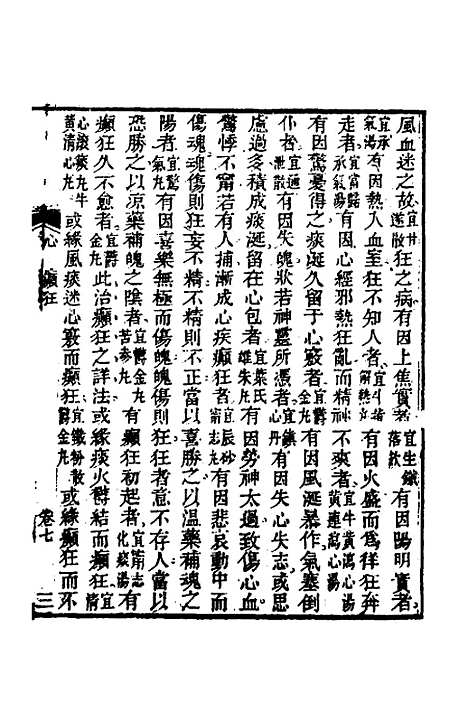 風血迷之故宜甘遂散狂之病有因上焦實者宜生鐵落飲有因陽明實者
宜承氣湯有因熱入血室狂不知人者宜解熱有因火盛而為徉狂奔
走者宜當歸承氣湯有因心經邪熱狂亂而精神不爽者宜牛黃瀉心湯黃連瀉心湯
有因驚憂得之痰涎久留于心竅者宜鬱金丸有因風涎暴作氣塞倒
仆者宜通泄散有因失魄狀若神靈所憑者宜鎮心丹有因失心失志或思
慮過多積成痰涎留在心包者宜葉氏雄朱丸有因勞神太過致傷心血
驚悸不甯若有人捕漸成心疾癲狂者宜辰砂甯志丸有因悲哀動中而
傷魂魂傷則狂妄不精不精則不正當以喜勝之以溫藥補魂之
陽者宜驚氣丸有因喜樂無極而傷魄魄傷則狂狂者意不存人當以
恐勝之以凉藥補魄之陰者宜鬱金丸苦參丸有癲狂初起者宜甯志化痰湯有
癲狂久不愈者宜鬱金丸此治癲狂之詳法或緣痰火鬱結而癲狂宜清
心滾痰丸牛黃清心丸或緣風痰迷心竅而癲狂宜鐵粉散鬱金丸或緣癲狂而不
心 癲狂 卷七 三